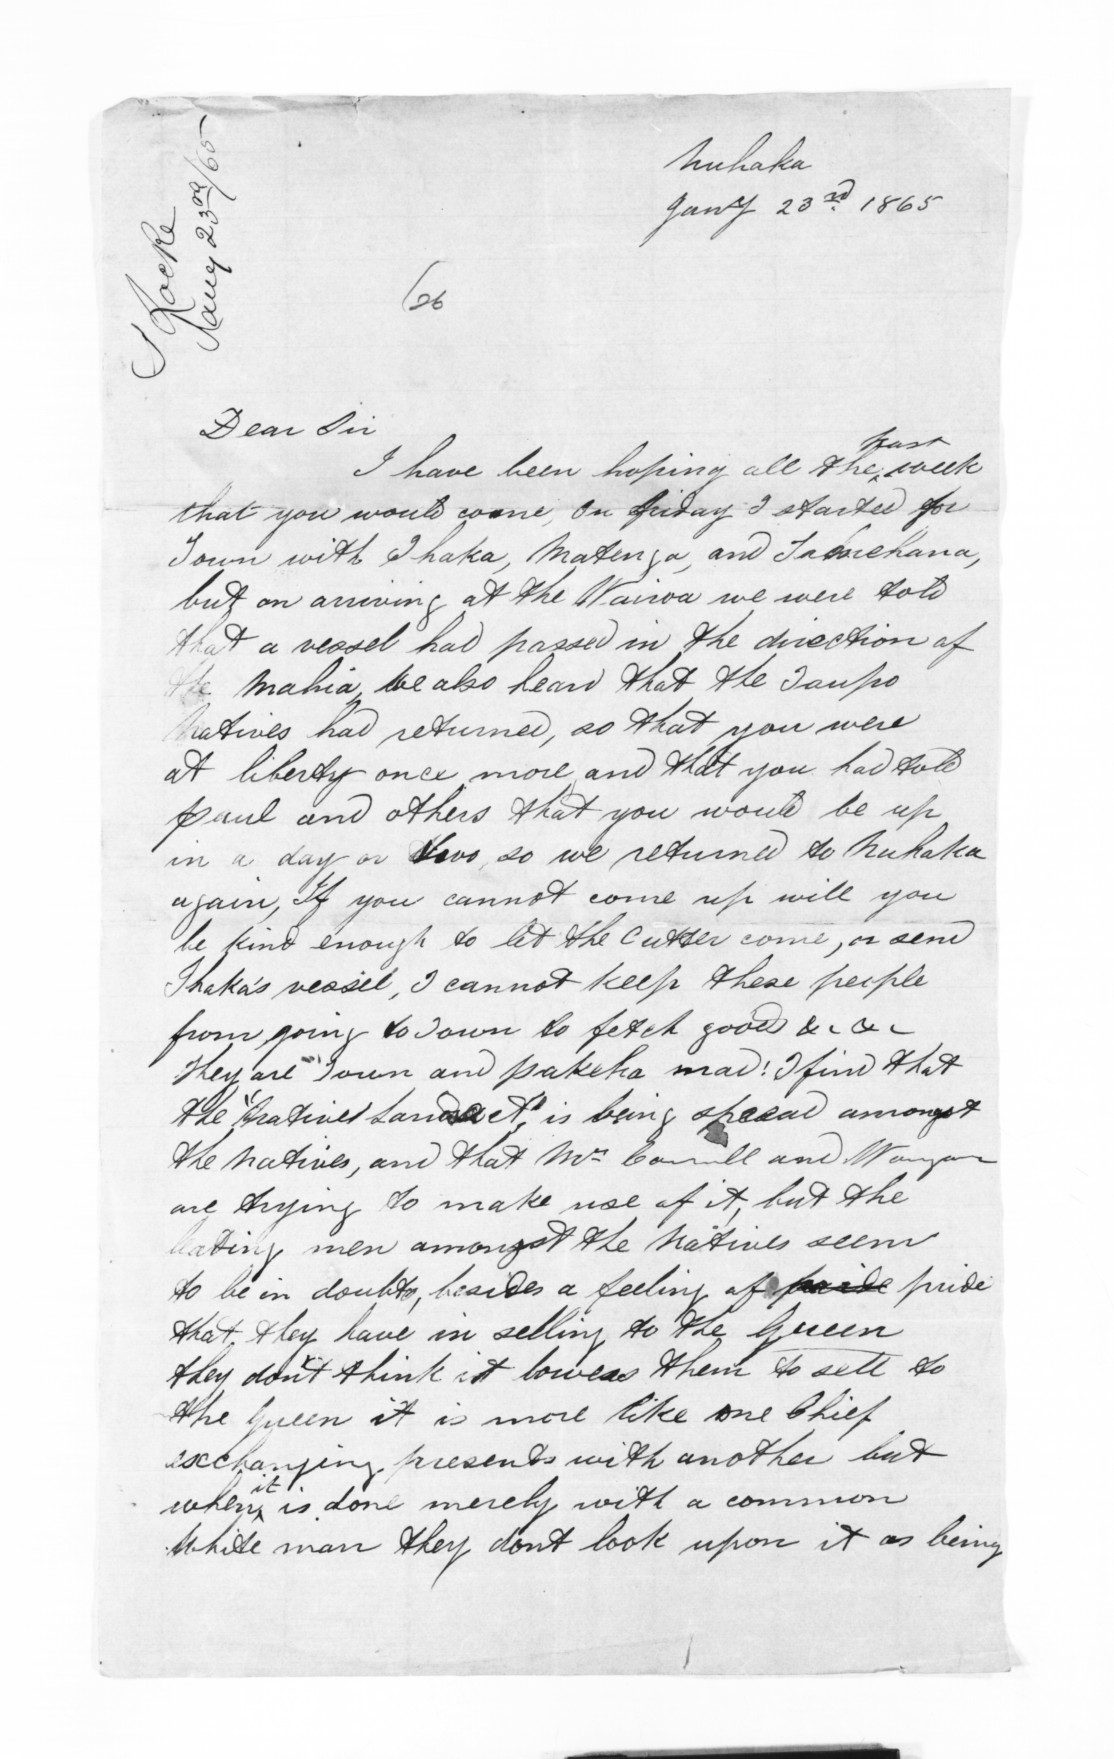 S Locke
Jany 23rd/65
Nuhaka
Jany 23rd 1865
(26
Dear Sir
I have been hoping all the past week
that you would come, On friday I started for
Town with Ihaka, Matenga, and
but on arriving at the Wairoa we were told
that a vessel had passed in the direction of
the Mahia, We also heard that the Taupo
Natives had returned, so that you were
at liberty once more, and that you had told
paul and others that you would be up
in a day or two, so we returned to Nuhaka
again, If you cannot come up will you
be kind enough to let the Cutter come, or send
Ihaka's vessel, I cannot keep these people
from going to Town to fetch goods &c &c
they are Town and pakeha mad! I find that
the "Native Lands Act" is being spread amongst
the Natives, and that Mr Carroll and
are trying to make use of it, but the
leading men amongst the Natives seem
to be in doubts, besides a feeling of pride pride
that they have in selling to the Queen
they don't think it lowers them to sell to
the Queen it is more like one Chief
exchanging presents with another but
when it is done merely with a common
White man they dont look upon it as being